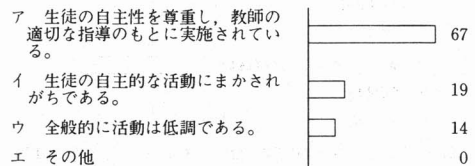 ア 生徒の自主性を尊重し，教師の
適切な指導のもとに実施されてい
る。
67
イ 生徒の自主的な活動にまかされ
がちである。
19
ウ 全般的に活動は低調である。
14
エ その他
0